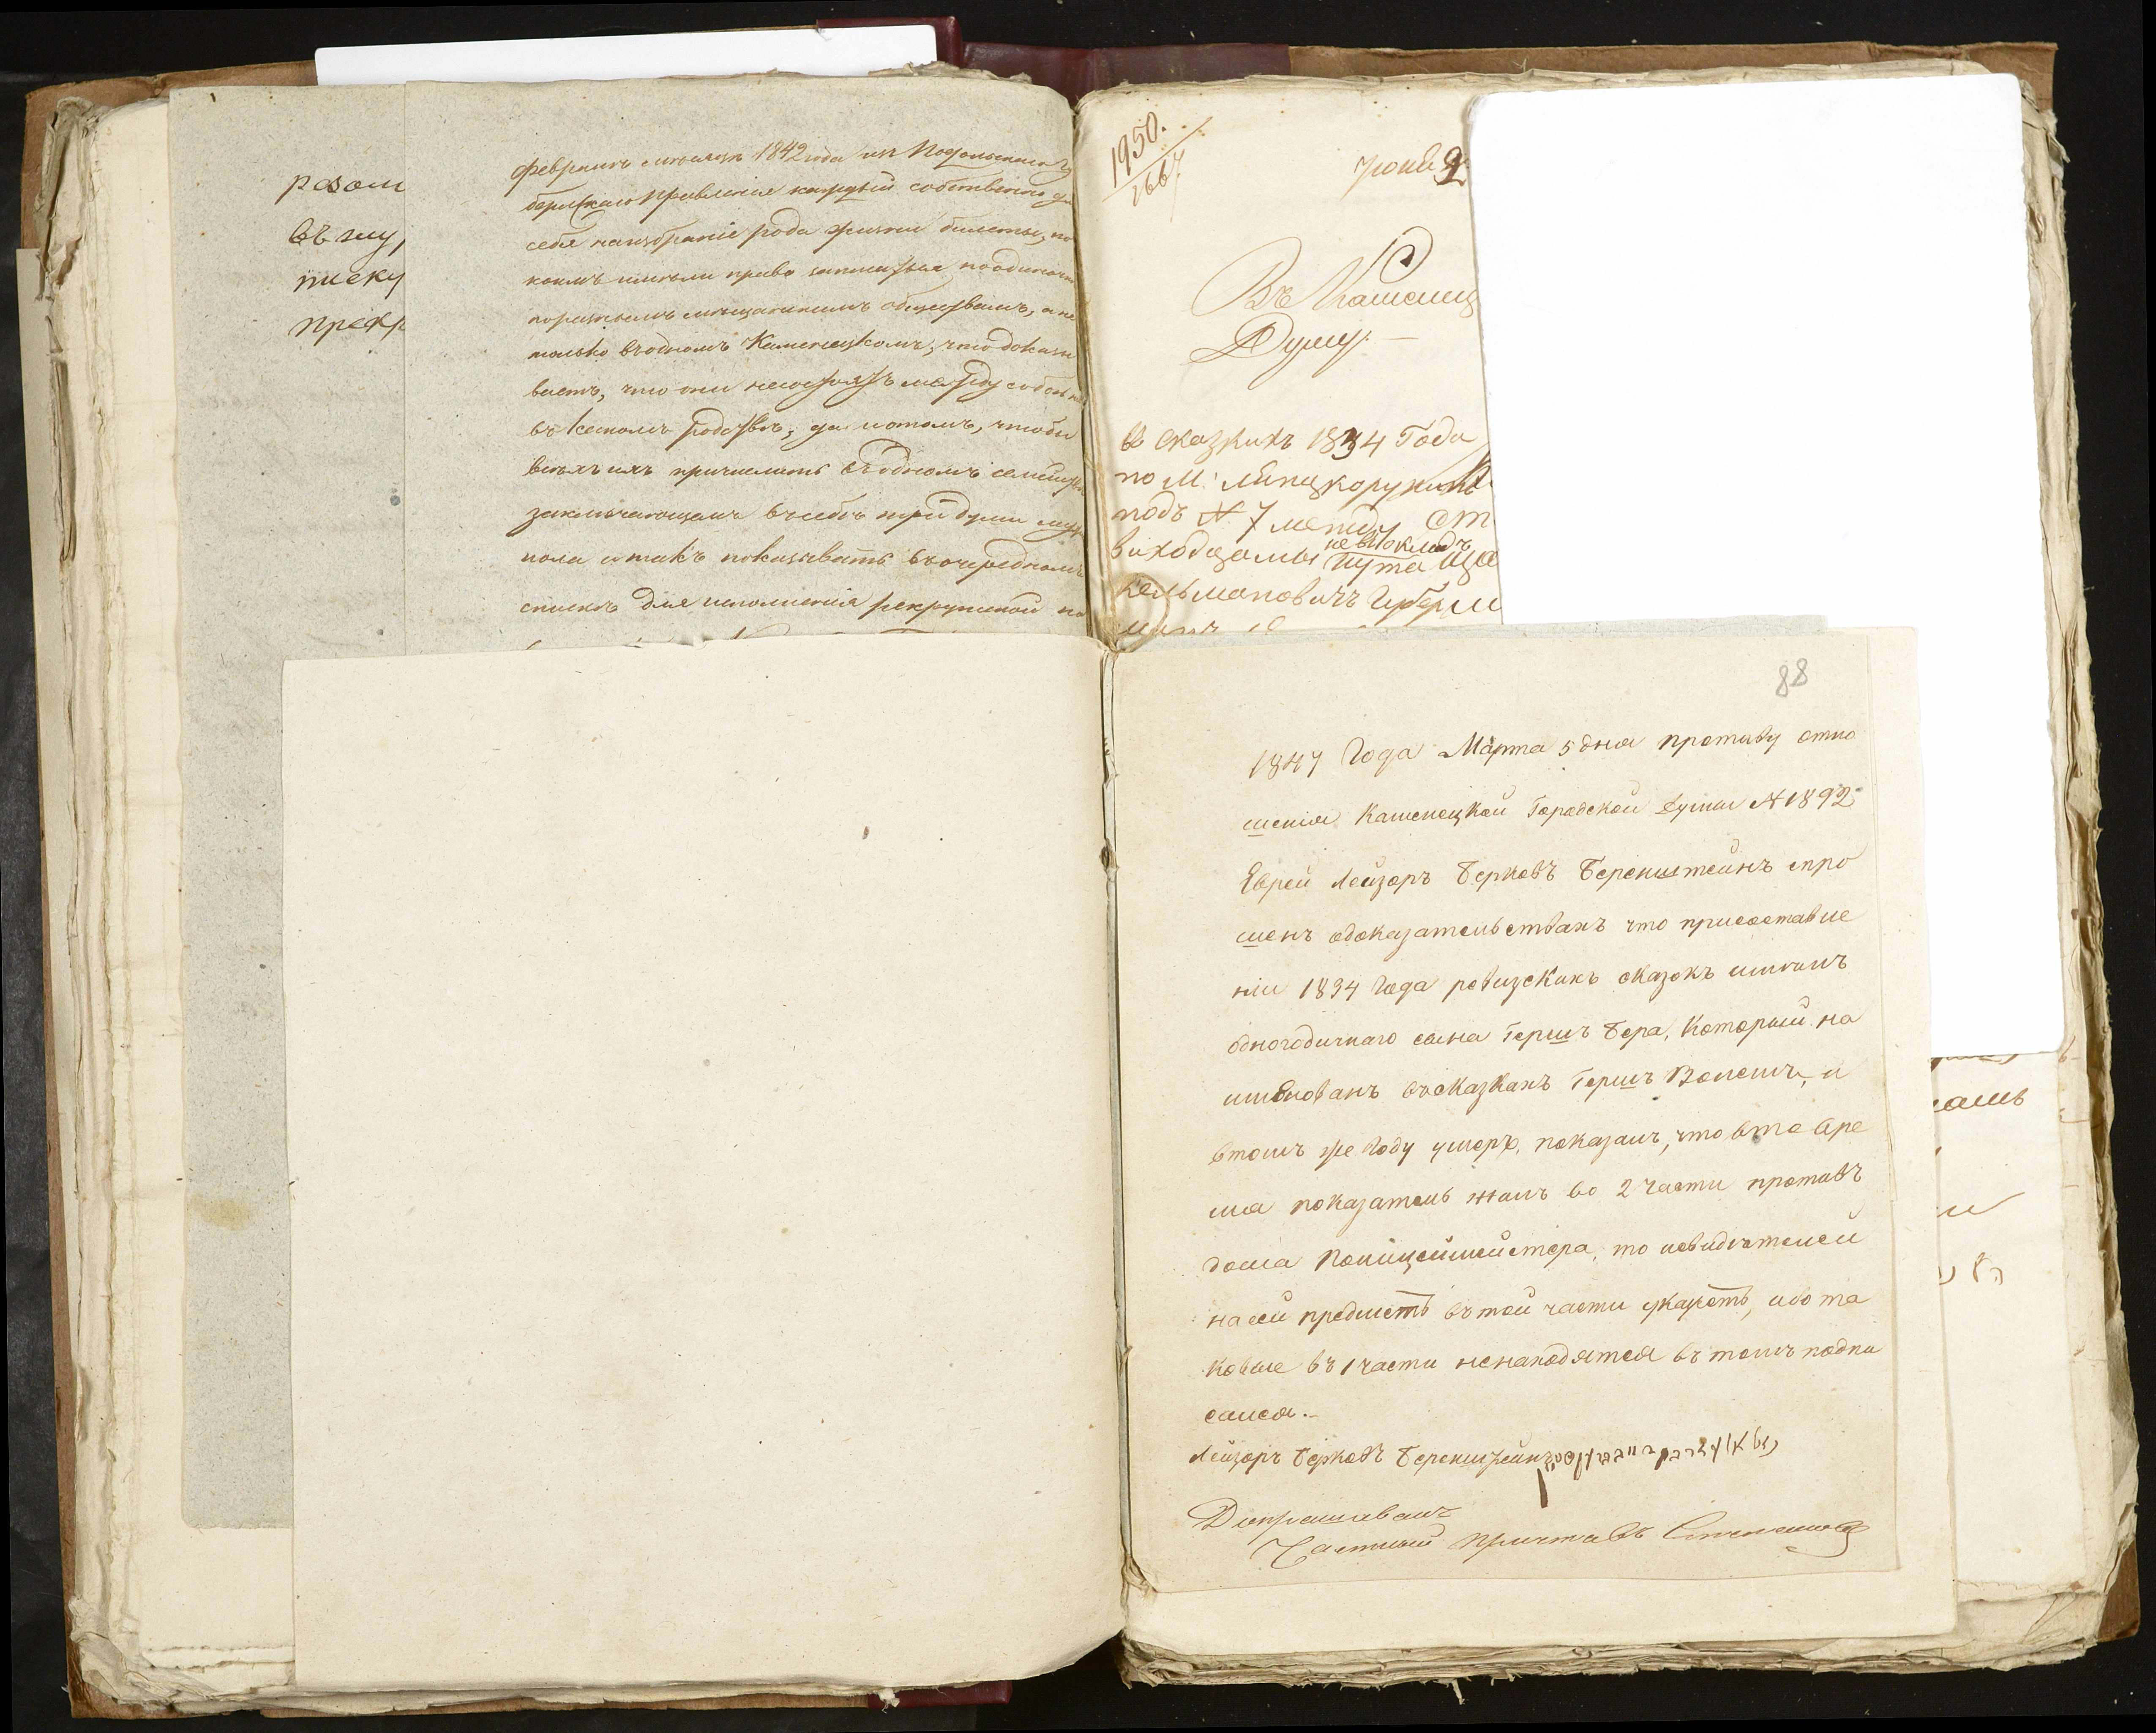 резол
въ му
писку
прекр
февралѣ мѣсяцѣ 1842 года изъ Подольскаго Гу
бернскаго Правленія каждый собственно для
себя на избраніе рода жизни билеты, по
коимъ имѣли право записаться поодиночкѣ
по разнымъ мещанскимъ обществамъ, а не
только въ одномъ Каменецкомъ; что доказы
ваетъ, что они несостоятъ между собою ни
въ какомъ родствѣ, да и потомъ, чтобы
всѣхъ ихъ причислить въ одномъ семействѣ
заключающемъ въ себѣ три души муж
пола и такъ показывать въ очередномъ
спискѣ для исполненія рекрутской по
1950.
1667
2
Въ Каменец
Думу.
въ сказкахъ 1834 Года
по М:
подъ N 7 между
виходцамы
невъокладъ
кельмановичъ
88
1847 Года Марта 5 дня противу отно
шенія Каменецкой Городской Думы N 1892
Еврей Лейзоръ Берковъ Беренштейнъ спро
шенъ одоказательствахъ что присоставле
ніи 1834 Года ревизскихъ сказокъ имѣлъ
одногодичнаго сына Гершъ Бера, Который на
именованъ въсказкахъ Гершъ Волемъ, и
втомъ же Году умеръ, показалъ, что вто вре
мя показатель жилъ во 2 части противъ
дома Полицеймейстера, то исвидѣтелей
насей предметъ въ той части укажетъ, ибо та
ковые въ 1 части ненаходятся въ томъ подпи
сался.
Лейзоръ Берковъ Беренштейнъ
Допрашивалъ
Частный приставъ